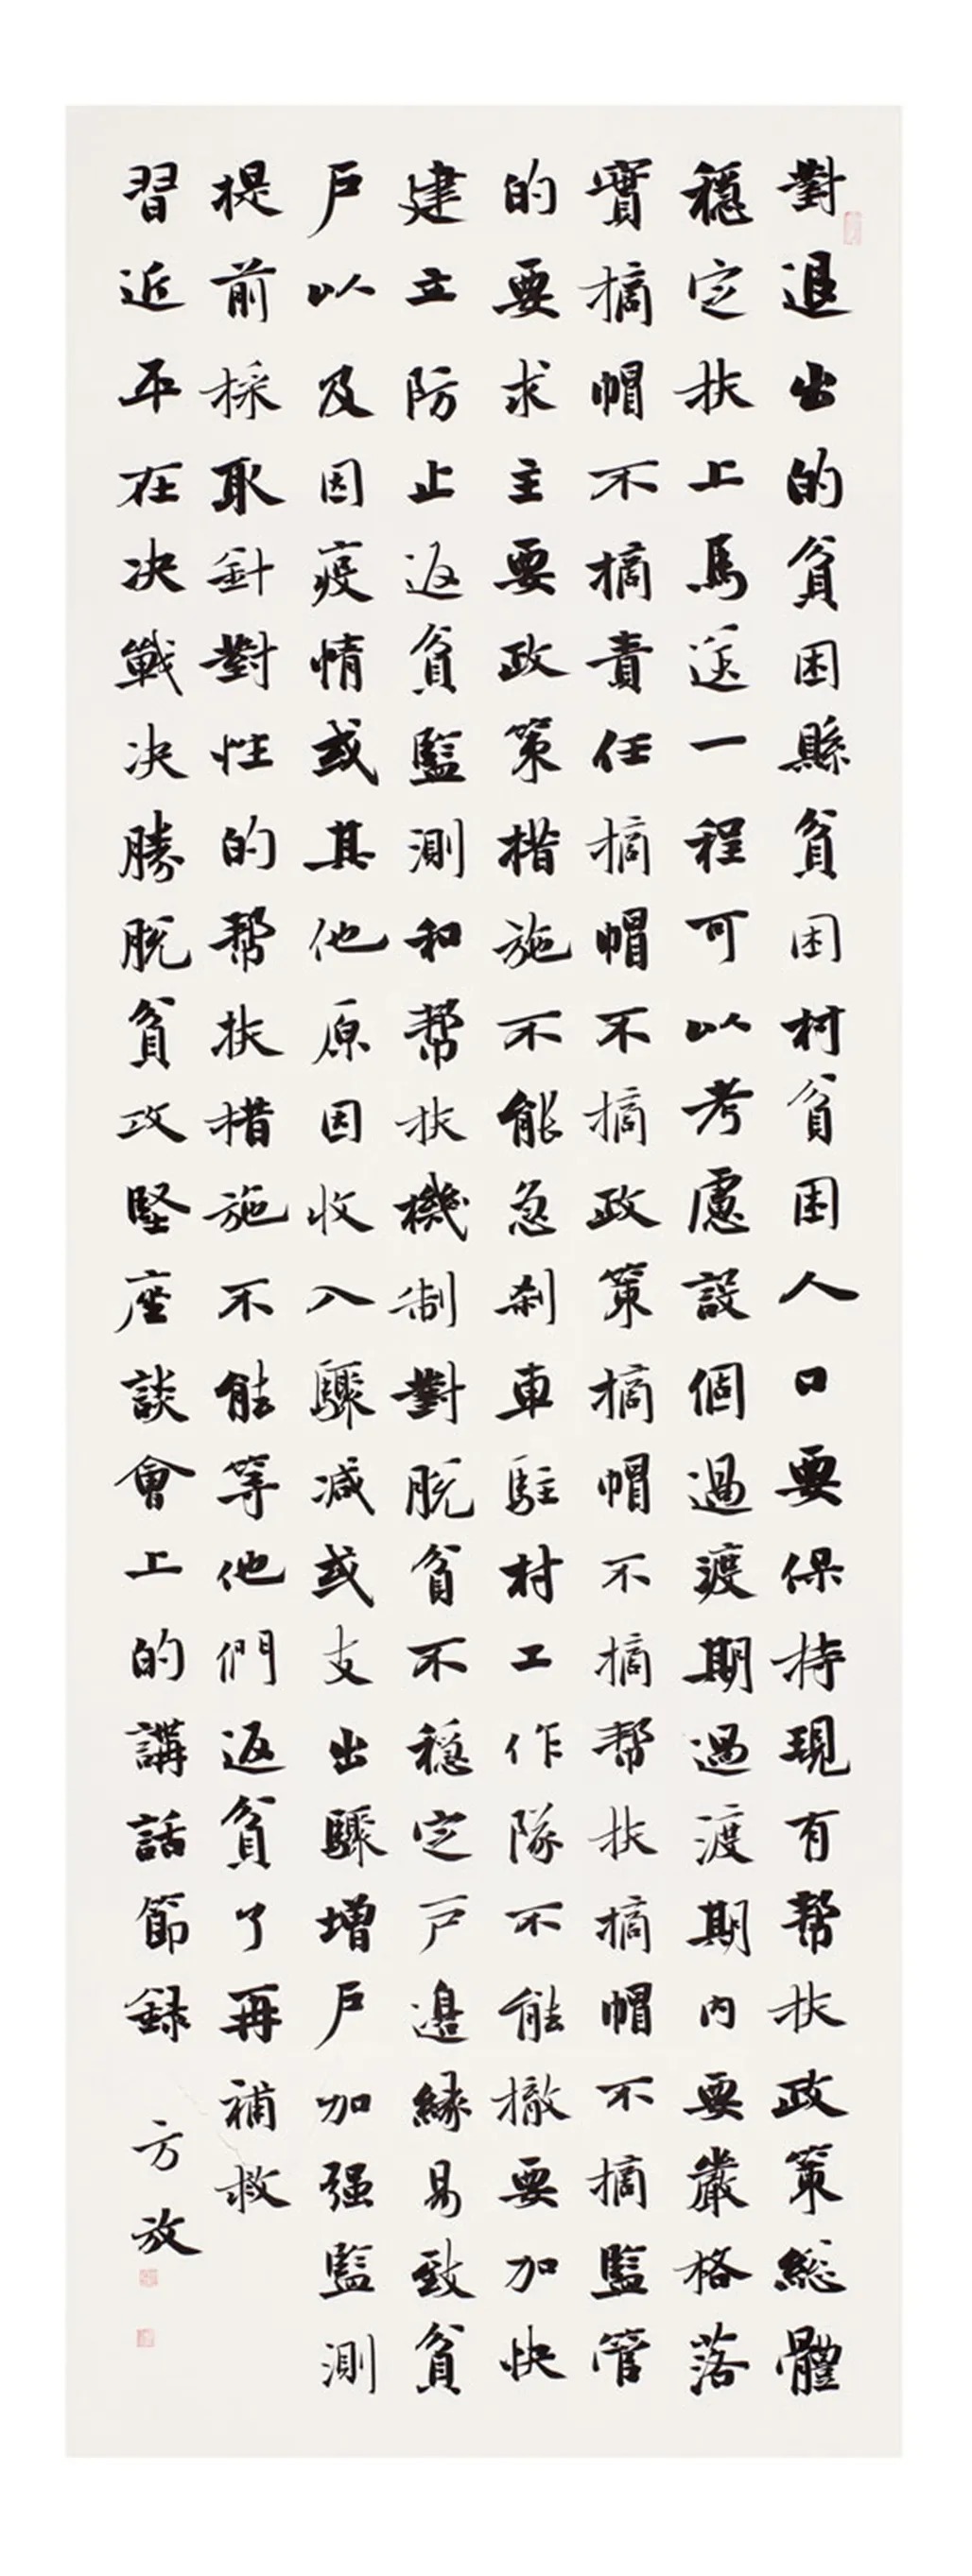 對退出的貧困縣貧困村貧困人口要保持現有幫扶政策總體
穩定扶上馬送一程可以考慮設個過渡期過渡期內要嚴格落
實摘帽不摘責任摘帽不摘政策摘帽不摘幫扶摘帽不摘監管
的要求主要政策措施不能急剎車駐村工作隊不能撤要加快
建立防止返貧監測和幫扶機制對脫貧不穩定戶邊緣易致貧
戶以及因疫情或其他原因收入驟減或支出驟增戶加强監測
提前採取針對性的幫扶措施不能等他們返貧了再補救
習近平在决戰决勝脫貧攻堅座談會上的講話節録 方放